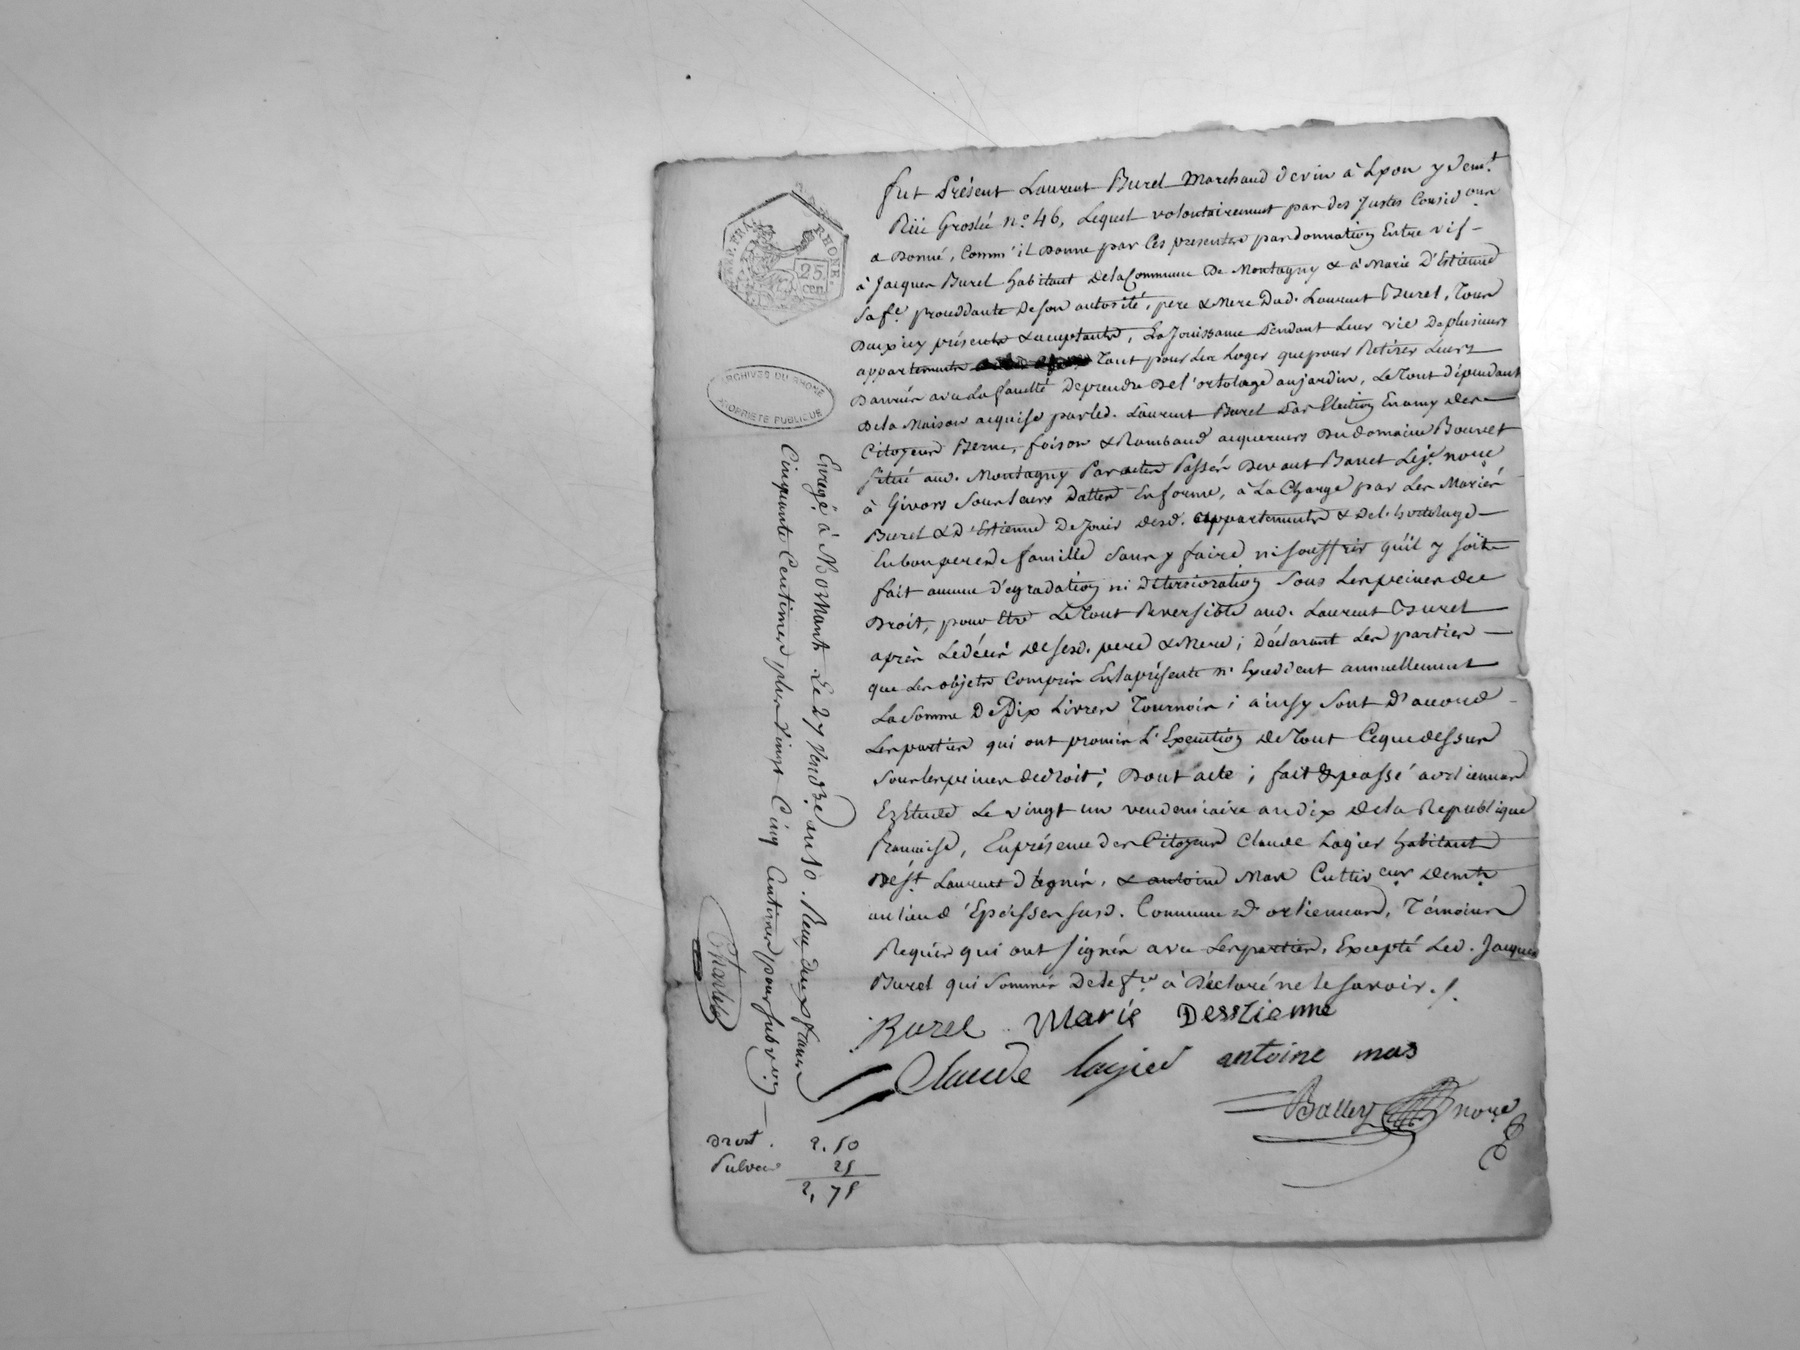 fut Présent Laurent Burel Marchand de vin à Lyon y demt.
Rüe Groslée n.o 46, Lequel volontairement par des Justes Considons
a Donné, Comm'il Donne par Ces presentes par donnation Entre vifs
à Jacques Burel habitant Dela Commune De Montagny & à Marie D'Estienne
sa fe. proceddante De son autorité, pere & Mere Dud. Laurent Burel, Tous
Deux icy présents & acceptants, La Jouissance Pendant Leur vie De plusieurs
appartements Tant pour Les Loger que pour Retirer Leurs
Danrées avec La faculté De prendre De l'ortolage au jardin, Le Tout dépendant
De la Maison acquise par led. Laurent Burel Par Election En amy des
Citoyens Berne, foison & Rambaud acquereurs Du domaine Bouvet
situé aud. Montagny Par actes Passés Devant Banet Leje. nore.
à Givors Sous leurs Dattes En forme, à La Charge par Les Mariés
Burel & D'Estienne De Jouir desd. appartements & Del. hortolage
En bon pere de famille sans y faire ni souffrir qu'il y soit
fait aucune dégradation ni déterrioration sous Les peines de
Droit, pour Etre Le Tout Reversible aud. Laurent Burel
après Le décés de sesd. pere & Mere; Déclarant Les parties
que Les objets Compris En la présente n'Exceddent annuellement
La Somme De Dix Livres Tournois; ainsy sont D'accord
Les parties qui ont promis L'Execution de Tout Ce que dessus
sous les peines de droit; Dont acte; fait & passé a orlienas
Ez Etude Le vingt un vendemiaire an dix de la Republique
francaise, En présence des Citoyens Claude Lagier habitant
De St. Laurent d'agnis, & antoine Mas Cultivateur demt.
au lieu d'Epeisses susd. Commune d'orlienas, Témoins
Requis qui ont signés avec Les parties, Excepté Led. Jacques
Burel qui sommés De le fre. a Déclaré ne le savoir ./.
Burel Marie Desstienne
Claude lagier antoine mas
Balley nore.
REP. FRA.
RHONE.
25
cen.
ARCHIVES DU RHONE
PROPRIETE PUBLIQUE
Enregé. à Mornant Le 27 Vendre. an 10. Reçu deux francs
Cinquante Centimes plus vingt Cinq Centimes pour subvon.
Charlet
Droit. 2.50
Subvon 25
2,75